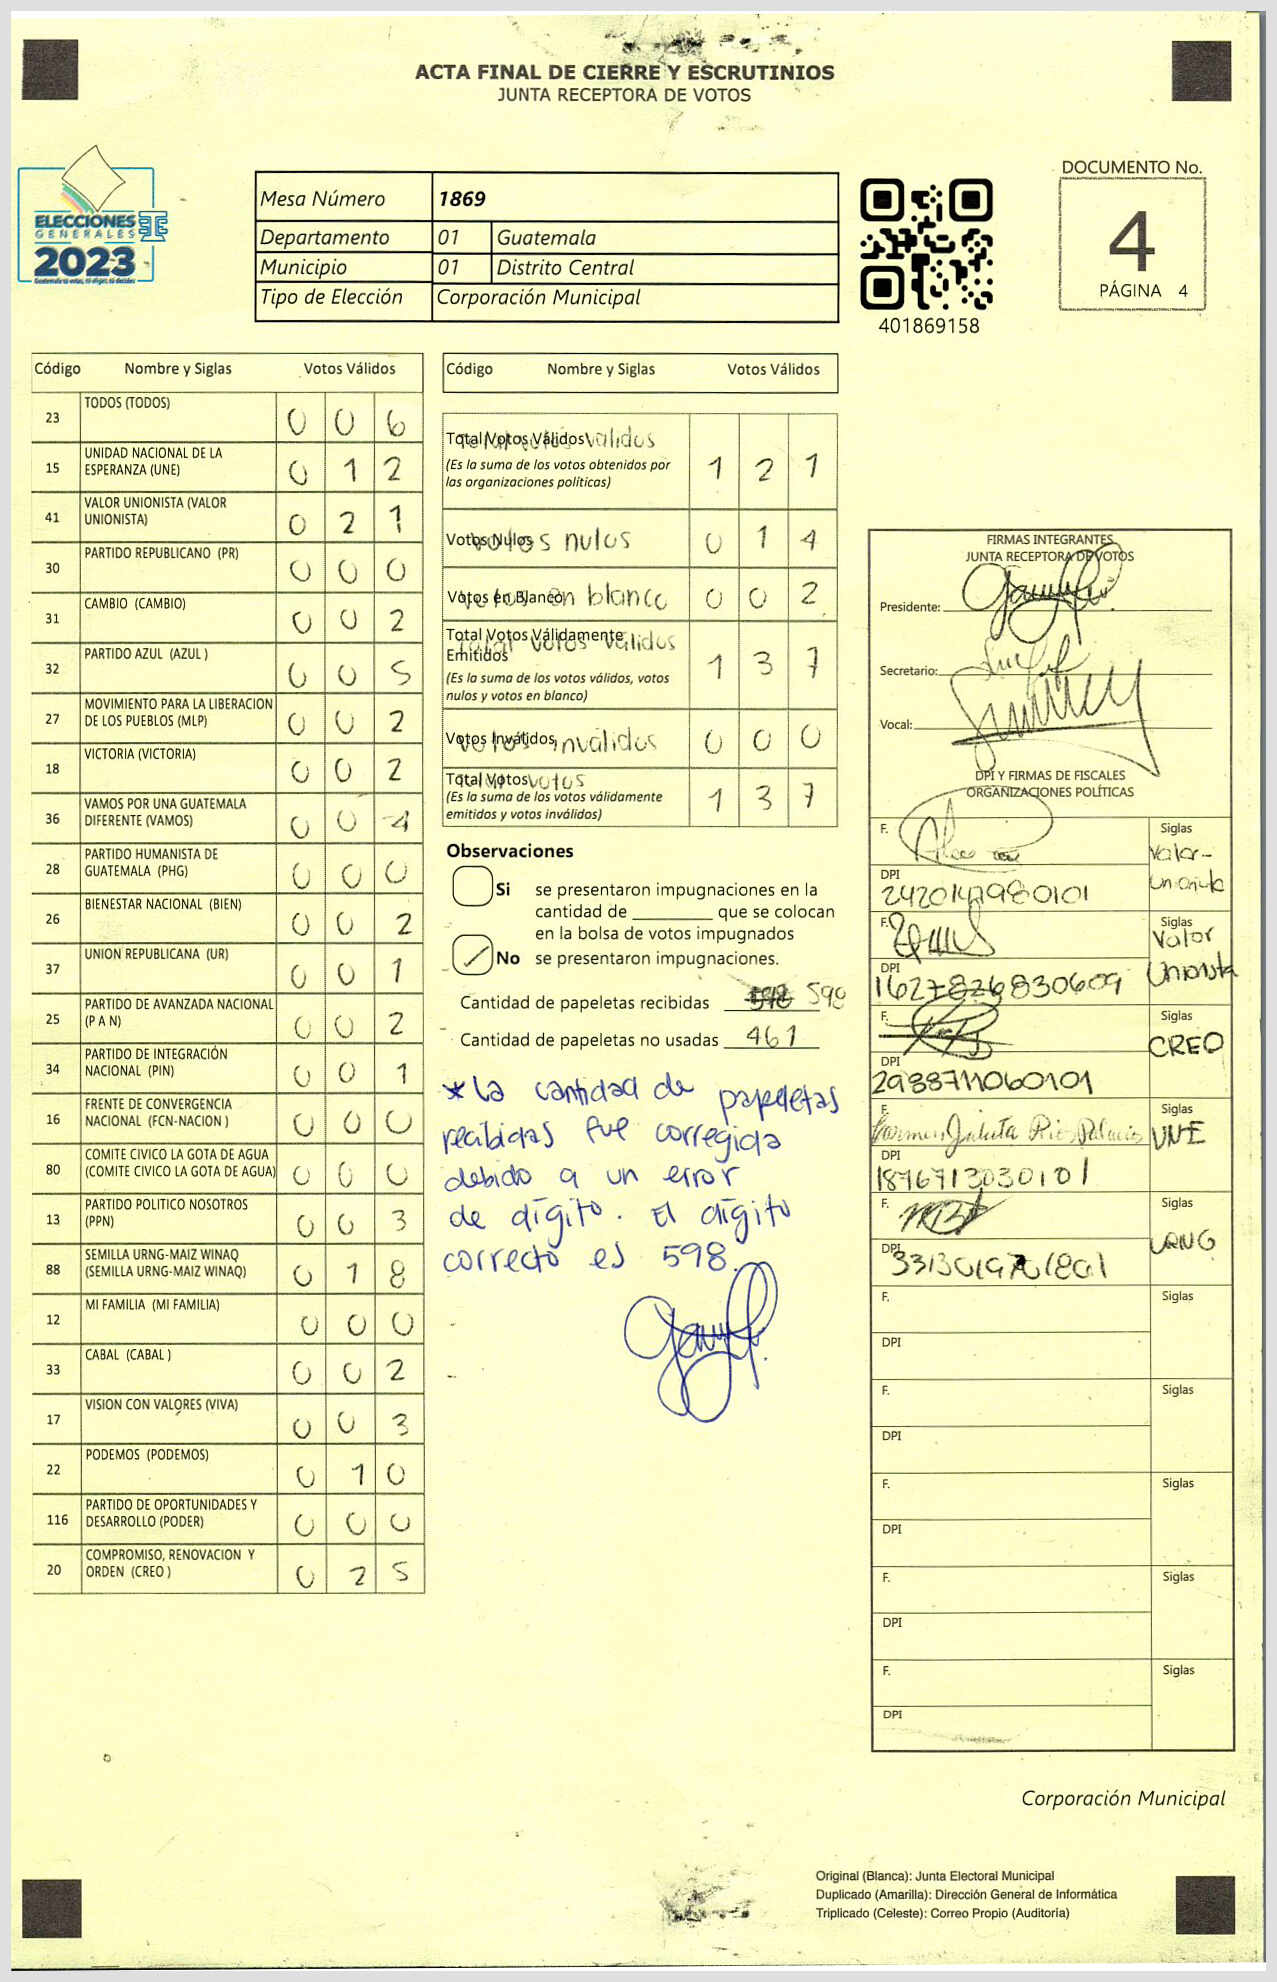 ACTA FINAL DE CIERRE Y ESCRUTINIOS
JUNTA RECEPTORA DE VOTOS
ELECCIONES
GENERALES
2023
Mesa Número 1869
Departamento 01 Guatemala
Municipio 01 Distrito Central
Tipo de Elección Corporación Municipal
401869158
DOCUMENTO No.
4
PÁGINA 4
Código Nombre y Siglas Votos Válidos
23 TODOS (TODOS) 0 0 6
15 UNIDAD NACIONAL DE LA
ESPERANZA (UNE) 0 1 2
41 VALOR UNIONISTA (VALOR
UNIONISTA) 0 2 1
30 PARTIDO REPUBLICANO (PR) 0 0 0
31 CAMBIO (CAMBIO) 0 0 2
32 PARTIDO AZUL (AZUL ) 0 0 5
27 MOVIMIENTO PARA LA LIBERACION
DE LOS PUEBLOS (MLP) 0 0 2
18 VICTORIA (VICTORIA) 0 0 2
36 VAMOS POR UNA GUATEMALA
DIFERENTE (VAMOS) 0 0 4
28 PARTIDO HUMANISTA DE
GUATEMALA (PHG) 0 0 0
26 BIENESTAR NACIONAL (BIEN) 0 0 2
37 UNION REPUBLICANA (UR) 0 0 1
25 PARTIDO DE AVANZADA NACIONAL
(P A N) 0 0 2
34 PARTIDO DE INTEGRACIÓN
NACIONAL (PIN) 0 0 1
16 FRENTE DE CONVERGENCIA
NACIONAL (FCN-NACION ) 0 0 0
80 COMITE CIVICO LA GOTA DE AGUA
(COMITE CIVICO LA GOTA DE AGUA) 0 0 0
13 PARTIDO POLITICO NOSOTROS
(PPN) 0 0 3
88 SEMILLA URNG-MAIZ WINAQ
(SEMILLA URNG-MAIZ WINAQ) 0 1 8
12 MI FAMILIA (MI FAMILIA) 0 0 0
33 CABAL (CABAL ) 0 0 2
17 VISION CON VALORES (VIVA) 0 0 3
22 PODEMOS (PODEMOS) 0 1 0
116 PARTIDO DE OPORTUNIDADES Y
DESARROLLO (PODER) 0 0 0
20 COMPROMISO, RENOVACION Y
ORDEN (CREO ) 0 2 5
Código Nombre y Siglas Votos Válidos
Total Votos Válidos Total votos válidos
(Es la suma de los votos obtenidos por
las organizaciones políticas) 1 2 1
Votos Nulos votos nulos 0 1 4
Votos en Blanco votos en blanco 0 0 2
Total Votos Válidamente
Emitidos Total votos válidos
(Es la suma de los votos válidos, votos
nulos y votos en blanco) 1 3 7
Votos Inválidos votos inválidos 0 0 0
Total Votos Total votos
(Es la suma de los votos válidamente
emitidos y votos inválidos) 1 3 7
Observaciones
Si se presentaron impugnaciones en la
cantidad de ________ que se colocan
en la bolsa de votos impugnados
No se presentaron impugnaciones.
Cantidad de papeletas recibidas 598
Cantidad de papeletas no usadas 461
* La cantidad de papeletas
recibidas fue corregida
debido a un error
de dígito. El dígito
correcto es 598.
FIRMAS INTEGRANTES
JUNTA RECEPTORA DE VOTOS
Presidente:
Secretario:
Vocal:
DPI Y FIRMAS DE FISCALES
ORGANIZACIONES POLÍTICAS
F. Siglas
Valor-
Unionista
DPI
F. Siglas
Valor
Unionista
DPI
1627826830609
F. Siglas
CREO
DPI
2988711060101
F. Siglas
UNE
DPI
1876713030101
F. Siglas
URNG
DPI
F. Siglas
DPI
F. Siglas
DPI
F. Siglas
DPI
F. Siglas
DPI
F. Siglas
DPI
Corporación Municipal
Original (Blanca): Junta Electoral Municipal
Duplicado (Amarilla): Dirección General de Informática
Triplicado (Celeste): Correo Propio (Auditoría)